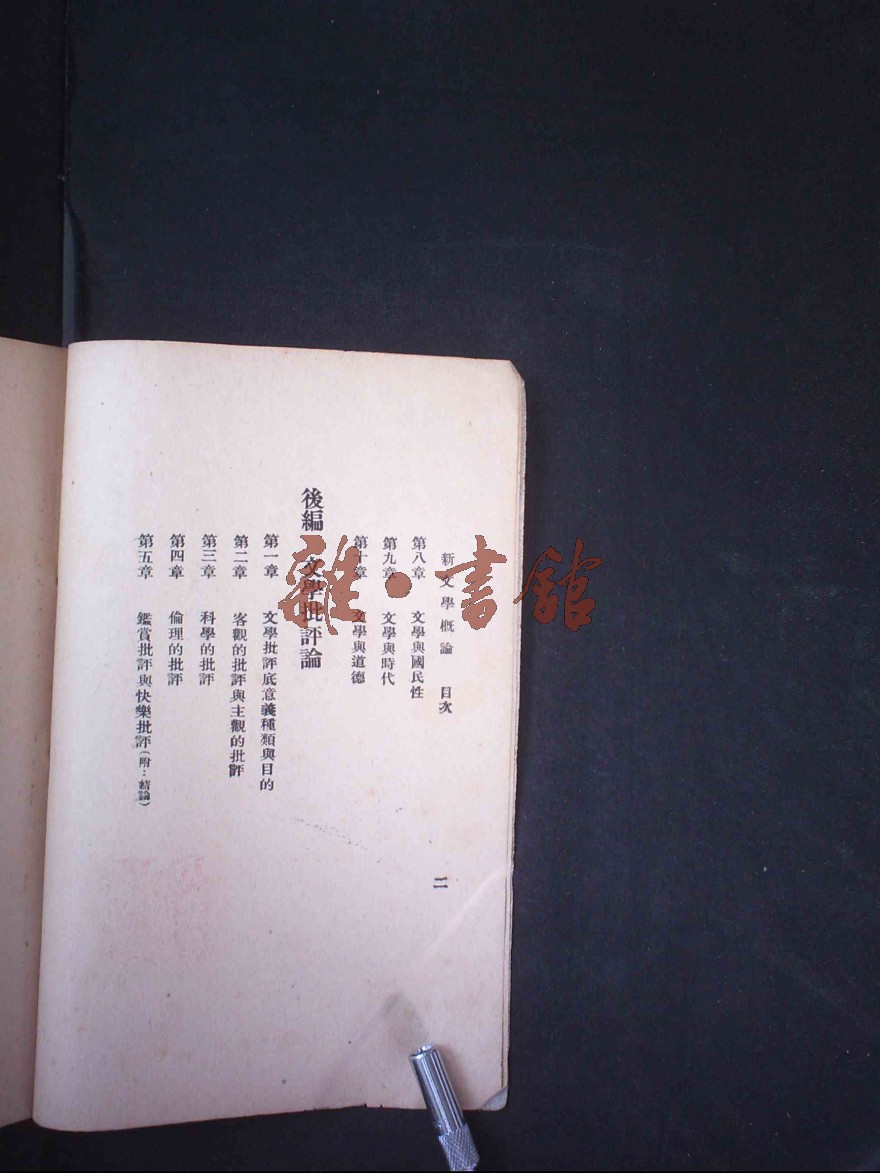 新文學概論 目次 二
第八章 文學與國民性
第九章 文學與時代
第十章 文學與道德
後編 文學批評論
第一章 文學批評底意義種類與目的
第二章 客觀的批評與主觀的批評
第三章 科學的批評
第四章 倫理的批評
第五章 鑑賞批評與快樂批評(附:結論)
雜·書館